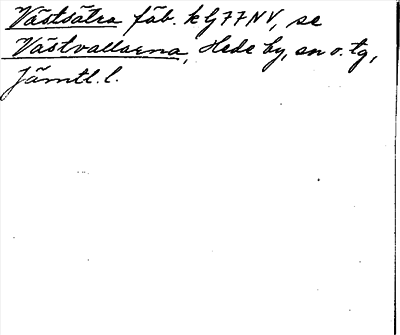 Västsätra fäb. kG77NV, se
Västvallarna, Hede by, sn o. tg,
Jämtl. l.